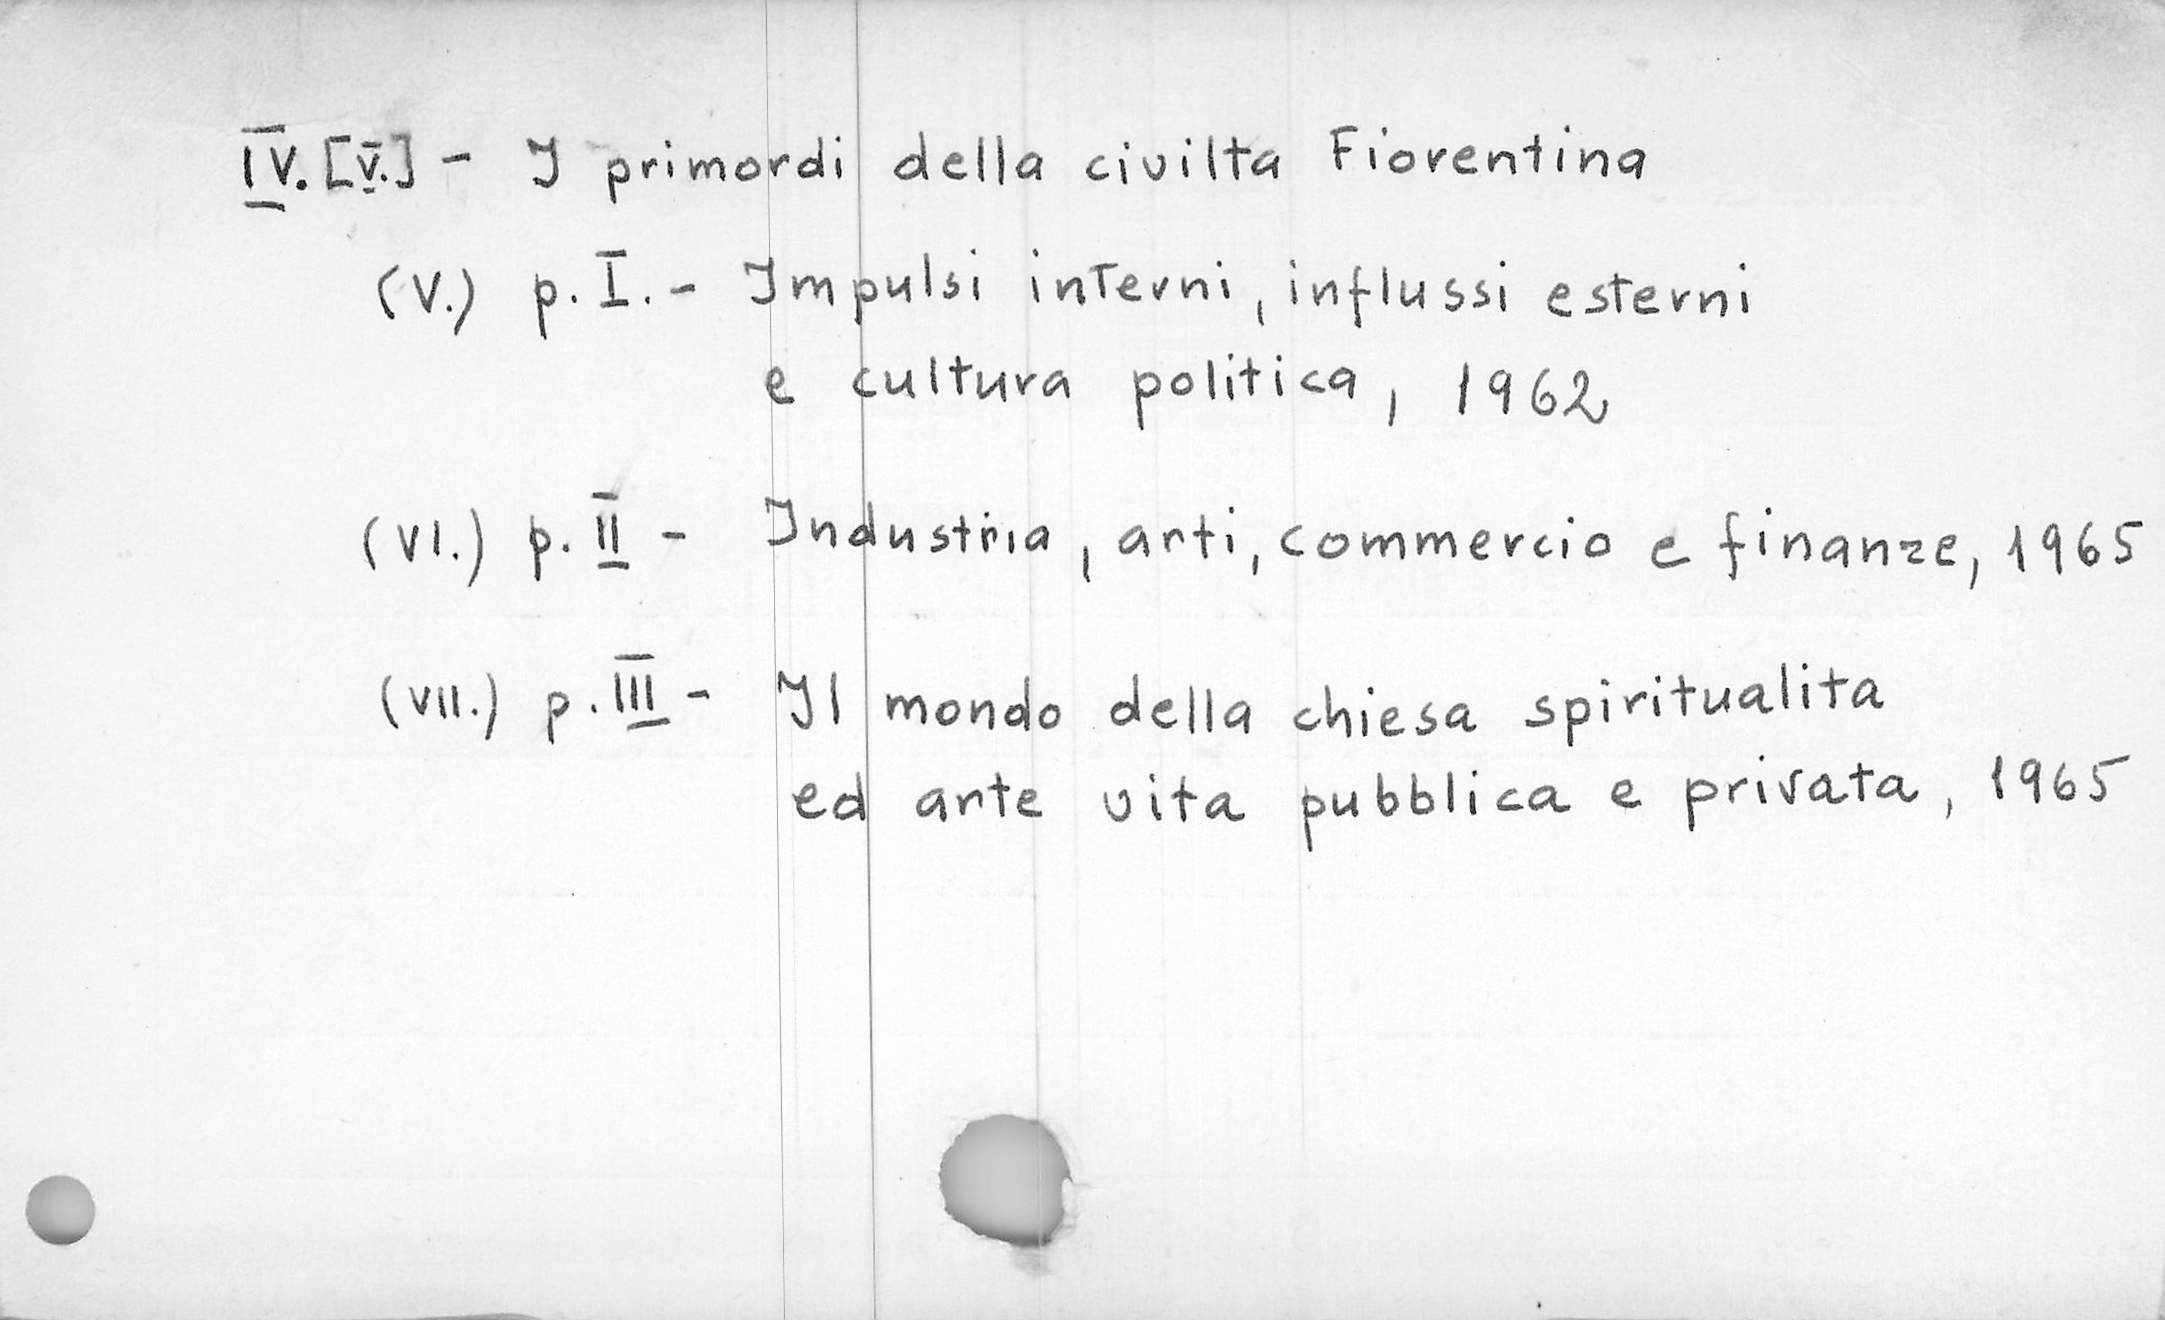 IV. [V.] - I primordi della civilta Fiorentina
(V.) p. I. - Impulsi interni, influssi esterni
e cultura politica, 1962
(VI.) p. II - Industria, arti, commercio e finanze, 1965
(VII.) p. III - Il mondo della chiesa spiritualita
ed arte vita pubblica e privata, 1965